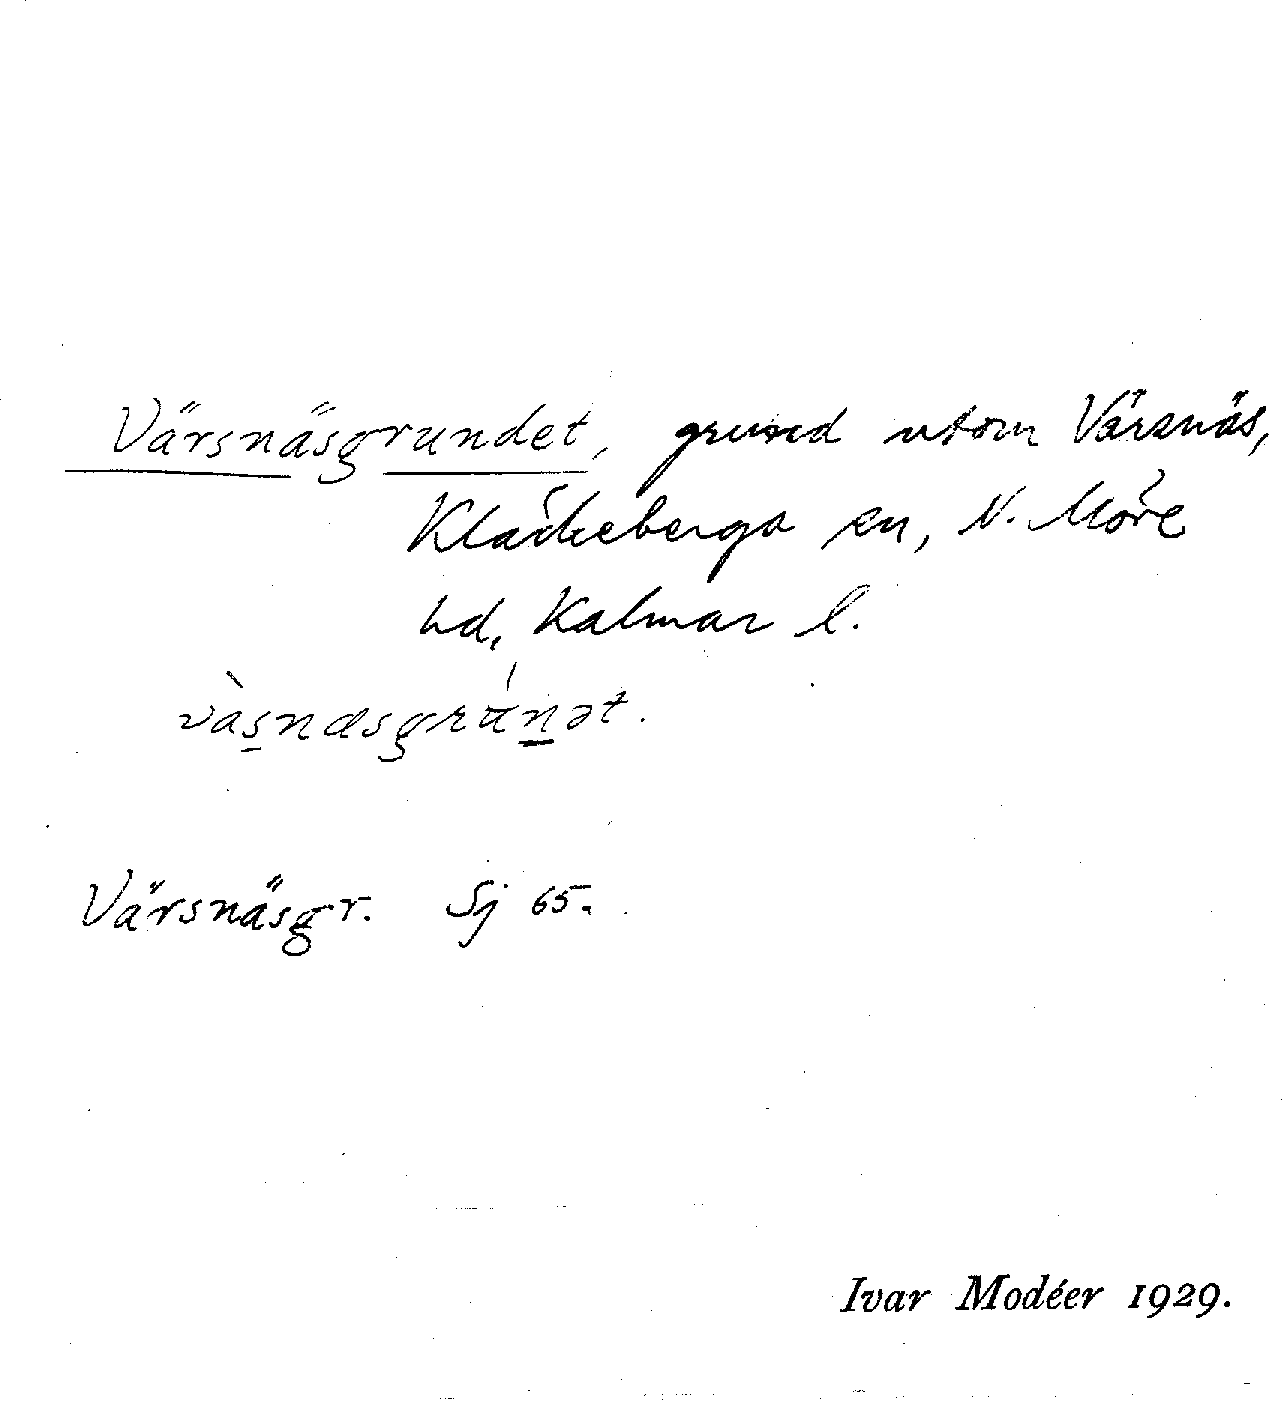 Värsnäsgrundet, grund utom Värsnäs,
Kläckeberga sn, N. Möre
hd, Kalmar l.
vàs̱næsgru̇́ṉət.
Värsnäsgr. Sj 65.
Ivar Modéer 1929.